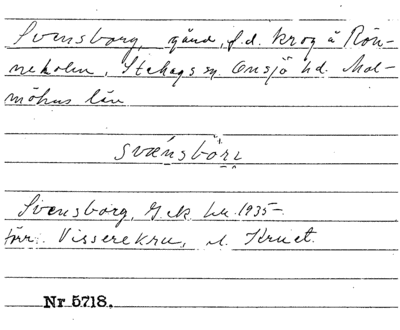 Svensborg, gård, f.d. krog å Rön-
neholm, Stehags sn Onsjö hd. Mal-
möhus län
svænsbörj
Svensborg, Gek bl. 1935-
förr. Visserekru, el. Kruet.
Nr 5718.